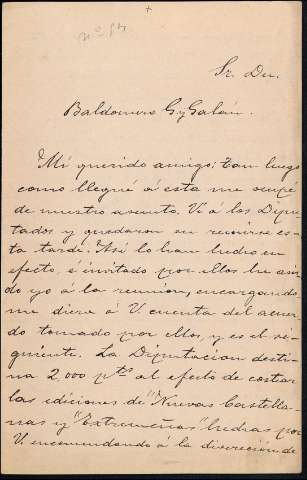 nº 94
Sr. Dn.
Baldomero G y Galán.
Mi querido amigo: Tan luego
como llegué á esta me ocupé
de nuestro asunto. Ví á los Dipu
tados y quedaron en reunirse es-
ta tarde. Así lo han hecho en
efecto, é invitado por ellos he asis
tido yo á la reunion, encargando
me diera á V. cuenta del acuer
do tomado por ellos, y es el si-
guiente. La Diputacion desti
na 2.000 pts al efecto de costear
las ediciones de "Nuevas Castella
nas y "Extremeñas" hechas por
V. encomendando á la direccion de